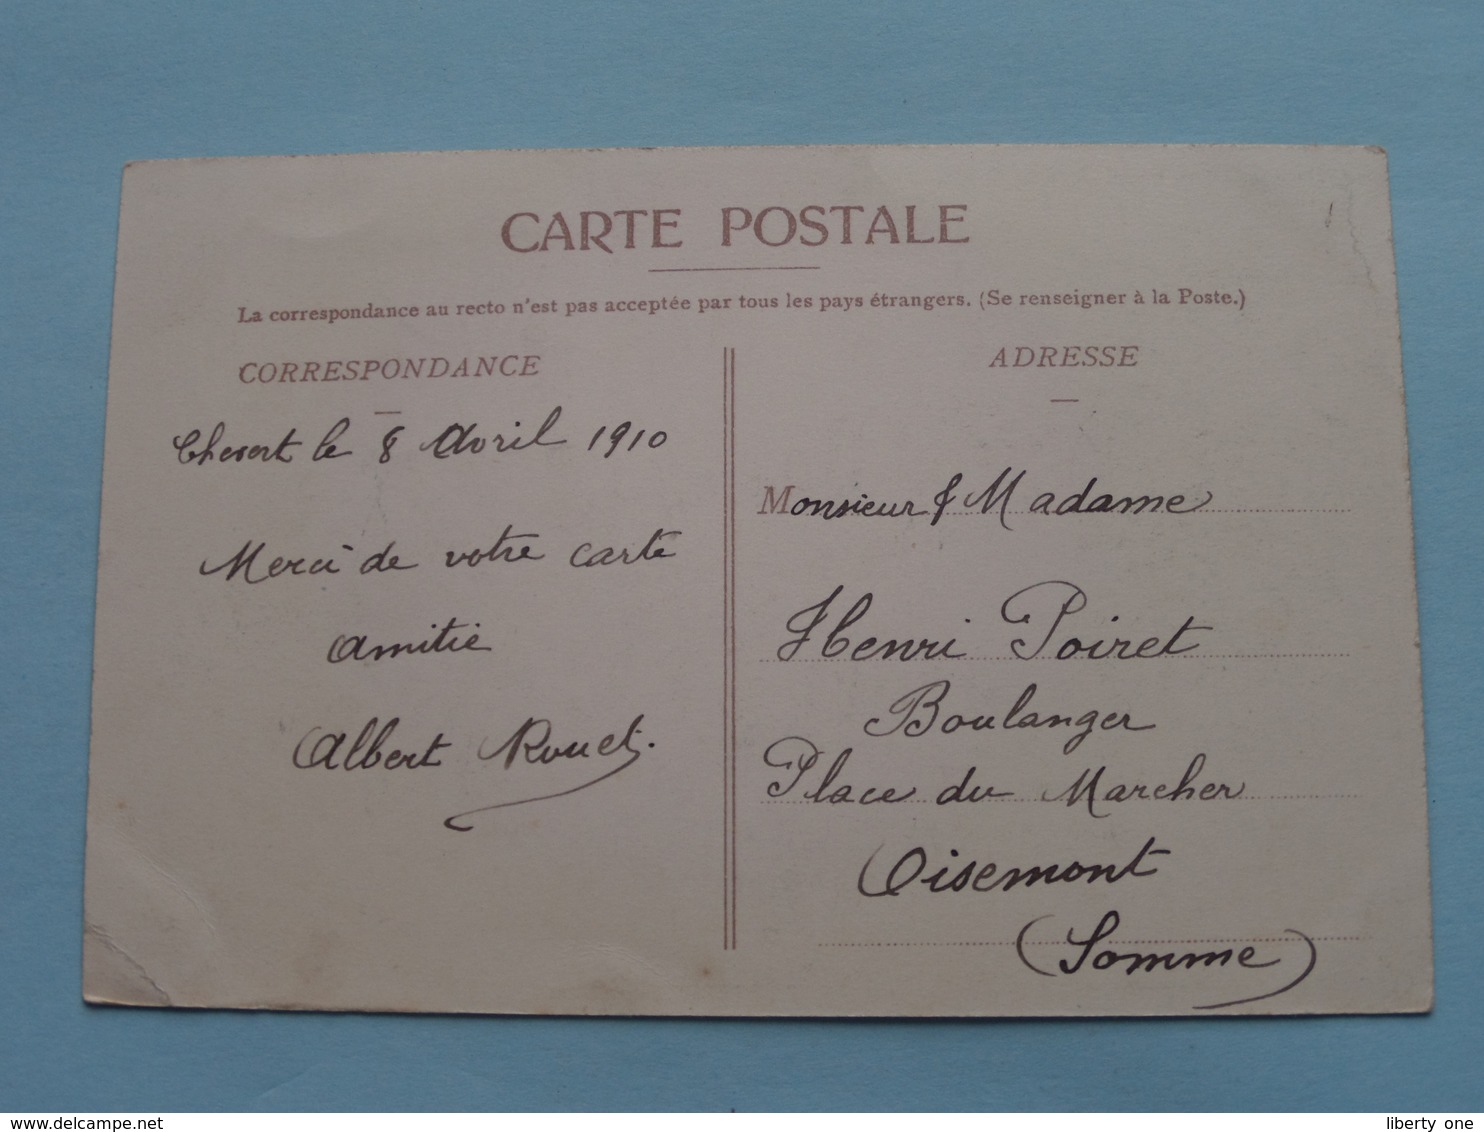 CARTE POSTALE
La correspondance au recto n'est pas acceptée par tous les pays étrangers. (Se renseigner à la Poste.)
CORRESPONDANCE
le 8 Avril 1910
Merci de votre carte
Amitié
Albert Rouet.
ADRESSE
Monsieur & Madame
Henri Poiret
Boulanger
Place du Marcher
Oisemont
(Somme)
www.delcampe.net
liberty one